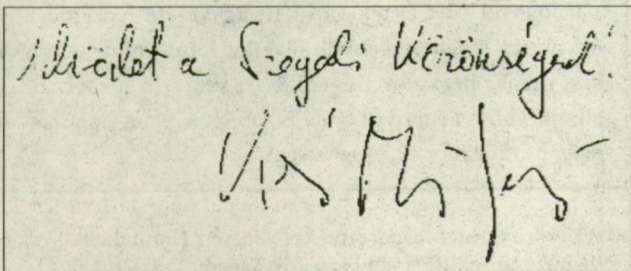 Üdvözlet a Szegedi Közönségnek!